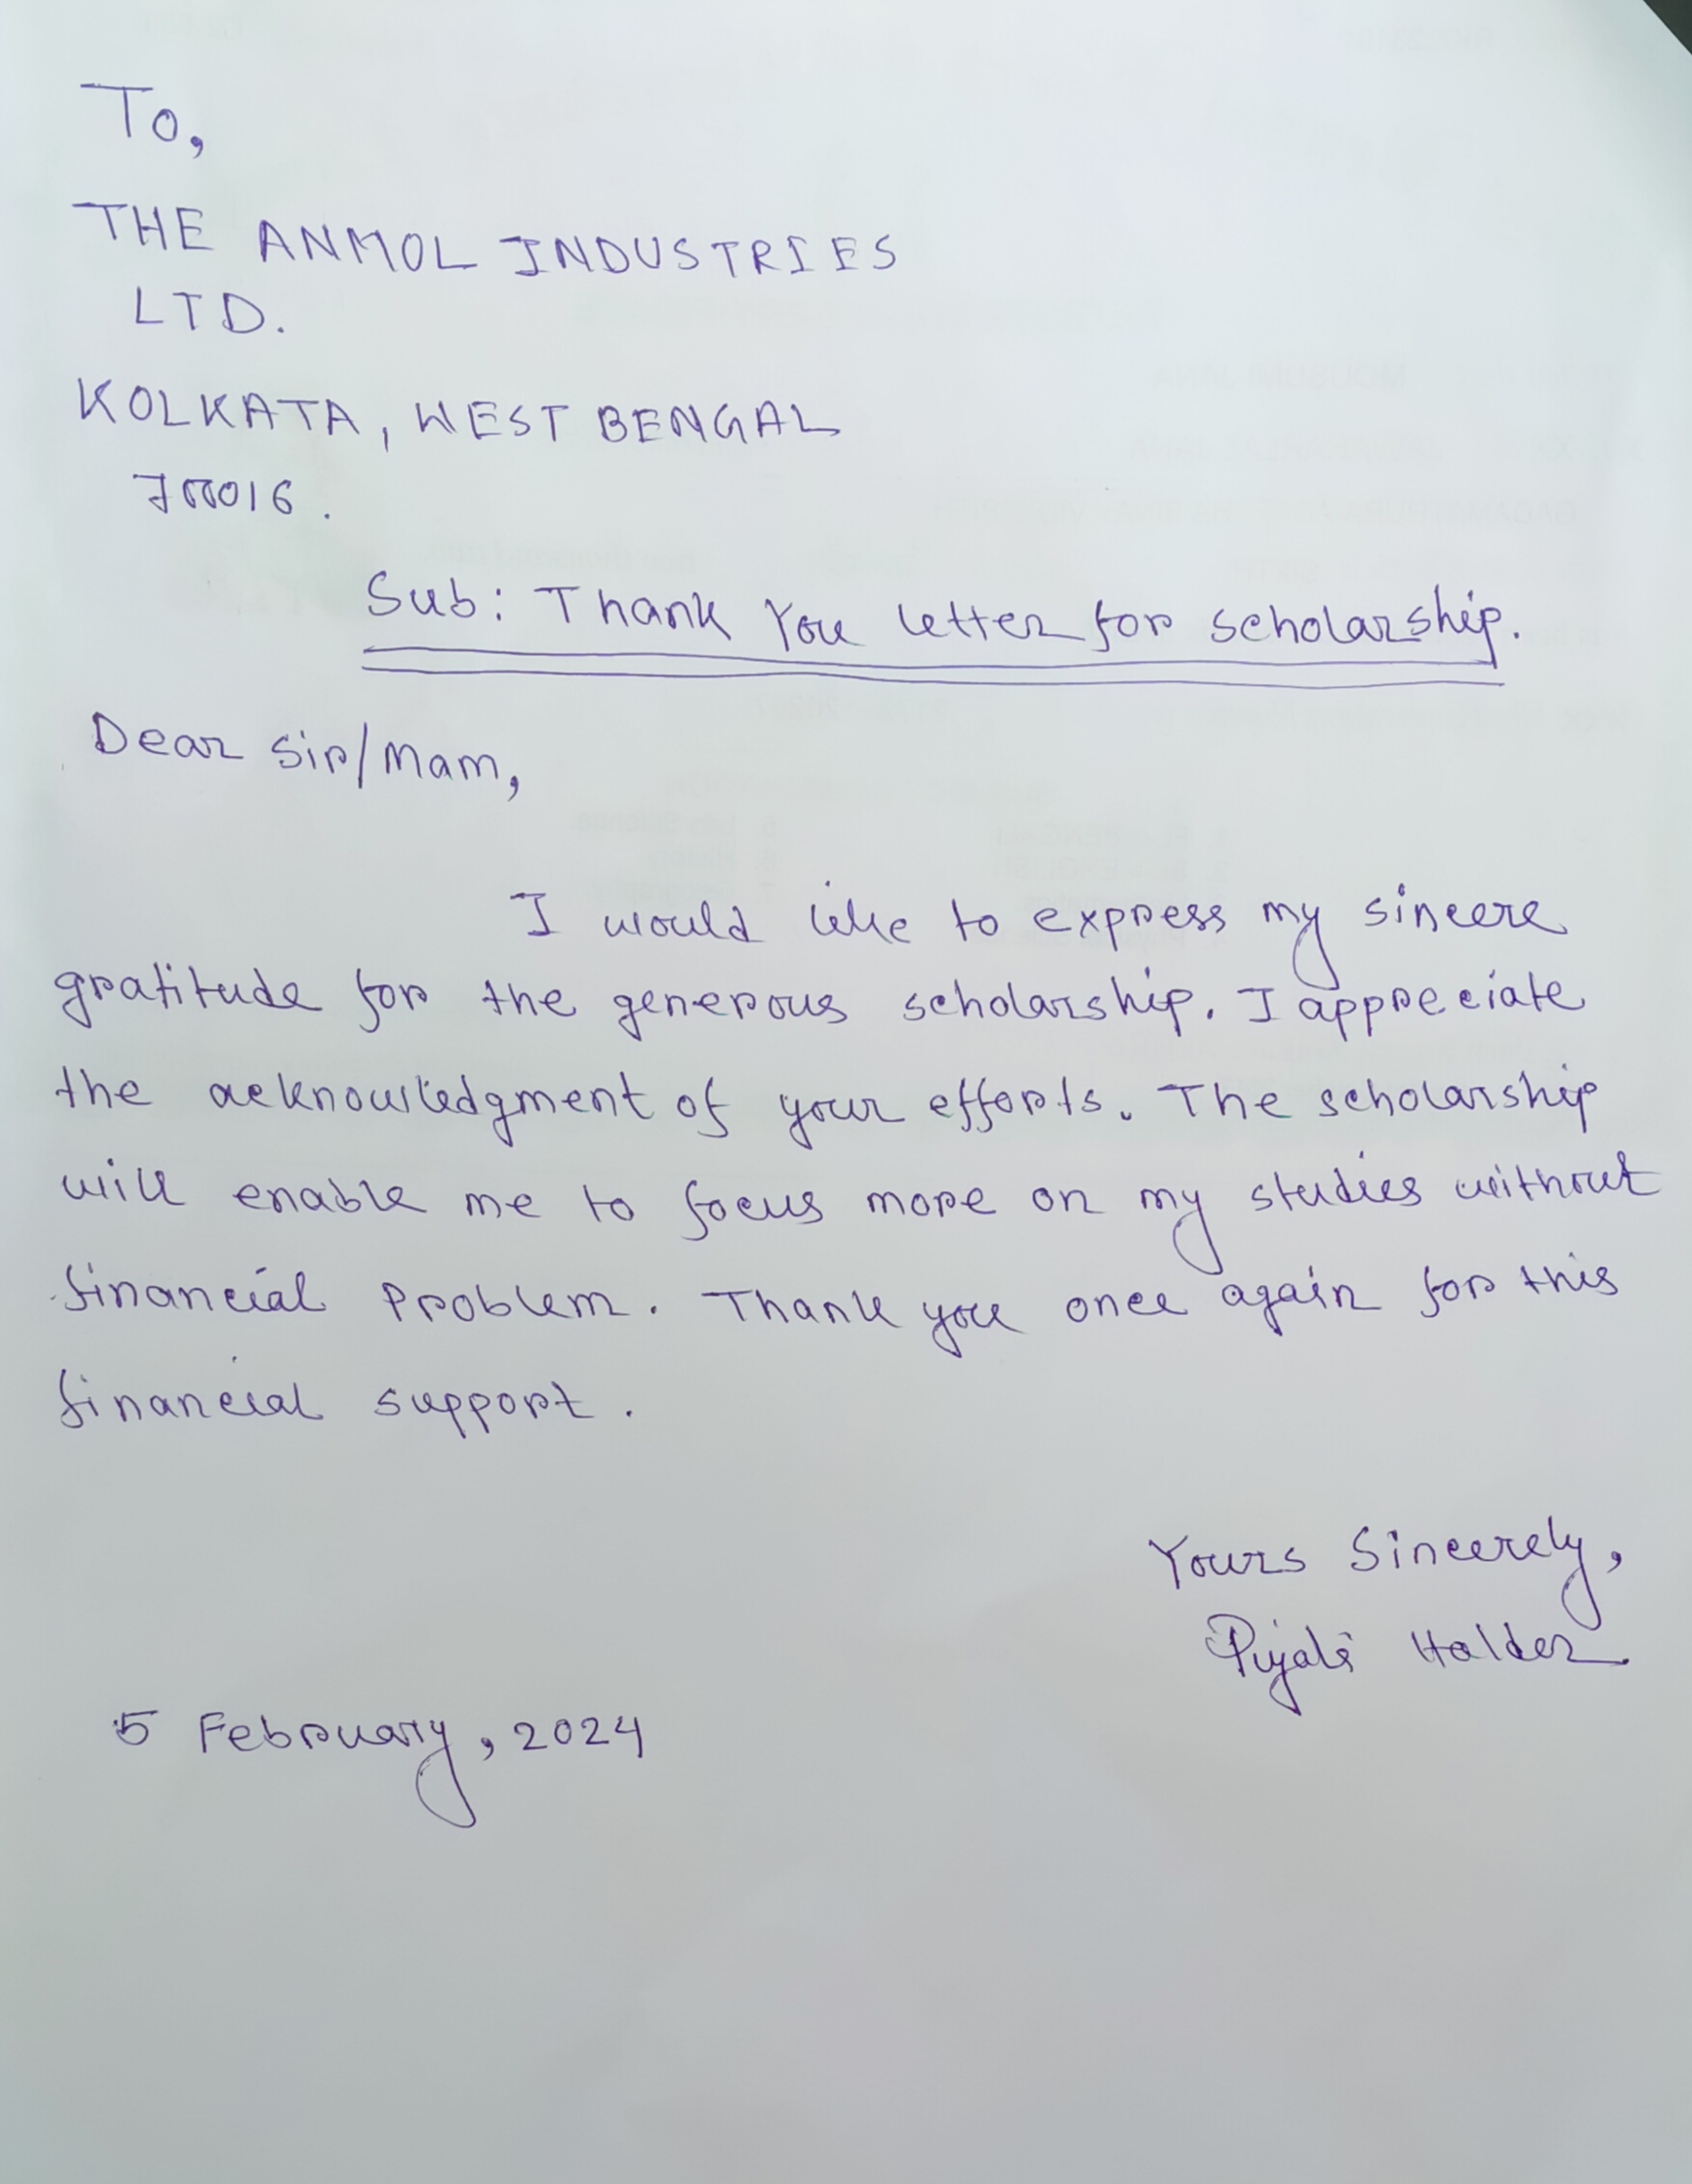 To,
THE ANMOL INDUSTRIES
LTD.
KOLKATA, WEST BENGAL
700016.
Sub: Thank You letter for scholarship.
Dear Sir/Mam,
I would like to express my sincere
gratitude for the generous scholarship. I appreciate
the acknowledgment of your efforts. The scholarship
will enable me to focus more on my studies without
financial problem. Thank you once again for this
financial support.
Yours Sincerely,
Pijali Halder
5 February, 2024